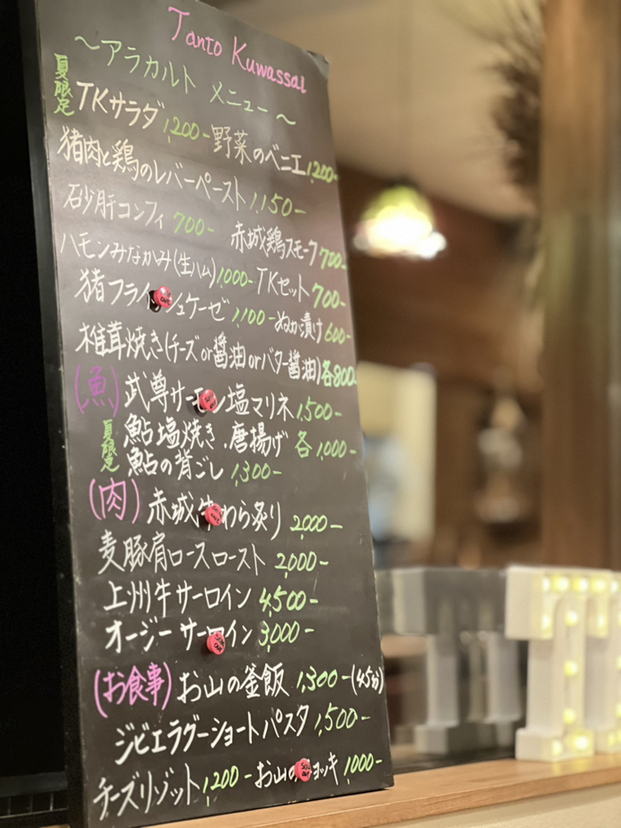 Tanto Kuwassai
～アラカルト メニュー～
夏限定 TKサラダ 1,200- 野菜のベニエ 1,200-
猪肉と鶏のレバーペースト 1,150-
砂肝コンフィ 700- 赤城鶏スモーク 700-
ハモンみなかみ(生ハム) 1,000- TKセット 700-
猪フライ シュケーゼ 1,100- ぬか漬け 600-
椎茸焼き(チーズor醤油orバター醤油)各800-
(魚) 武尊サーモン塩マリネ 1,500-
夏限定 鮎塩焼き・唐揚げ 各1,000-
鮎の背ごし 1,300-
(肉) 赤城牛わら炙り 2,000-
麦豚肩ロースロースト 2,000-
上州牛サーロイン 4,500-
オージーサーロイン 3,000-
(お食事) お山の釜飯 1,300-(45分)
ジビエラグーショートパスタ 1,500-
チーズリゾット 1,200- お山の ョッキ 1,000-